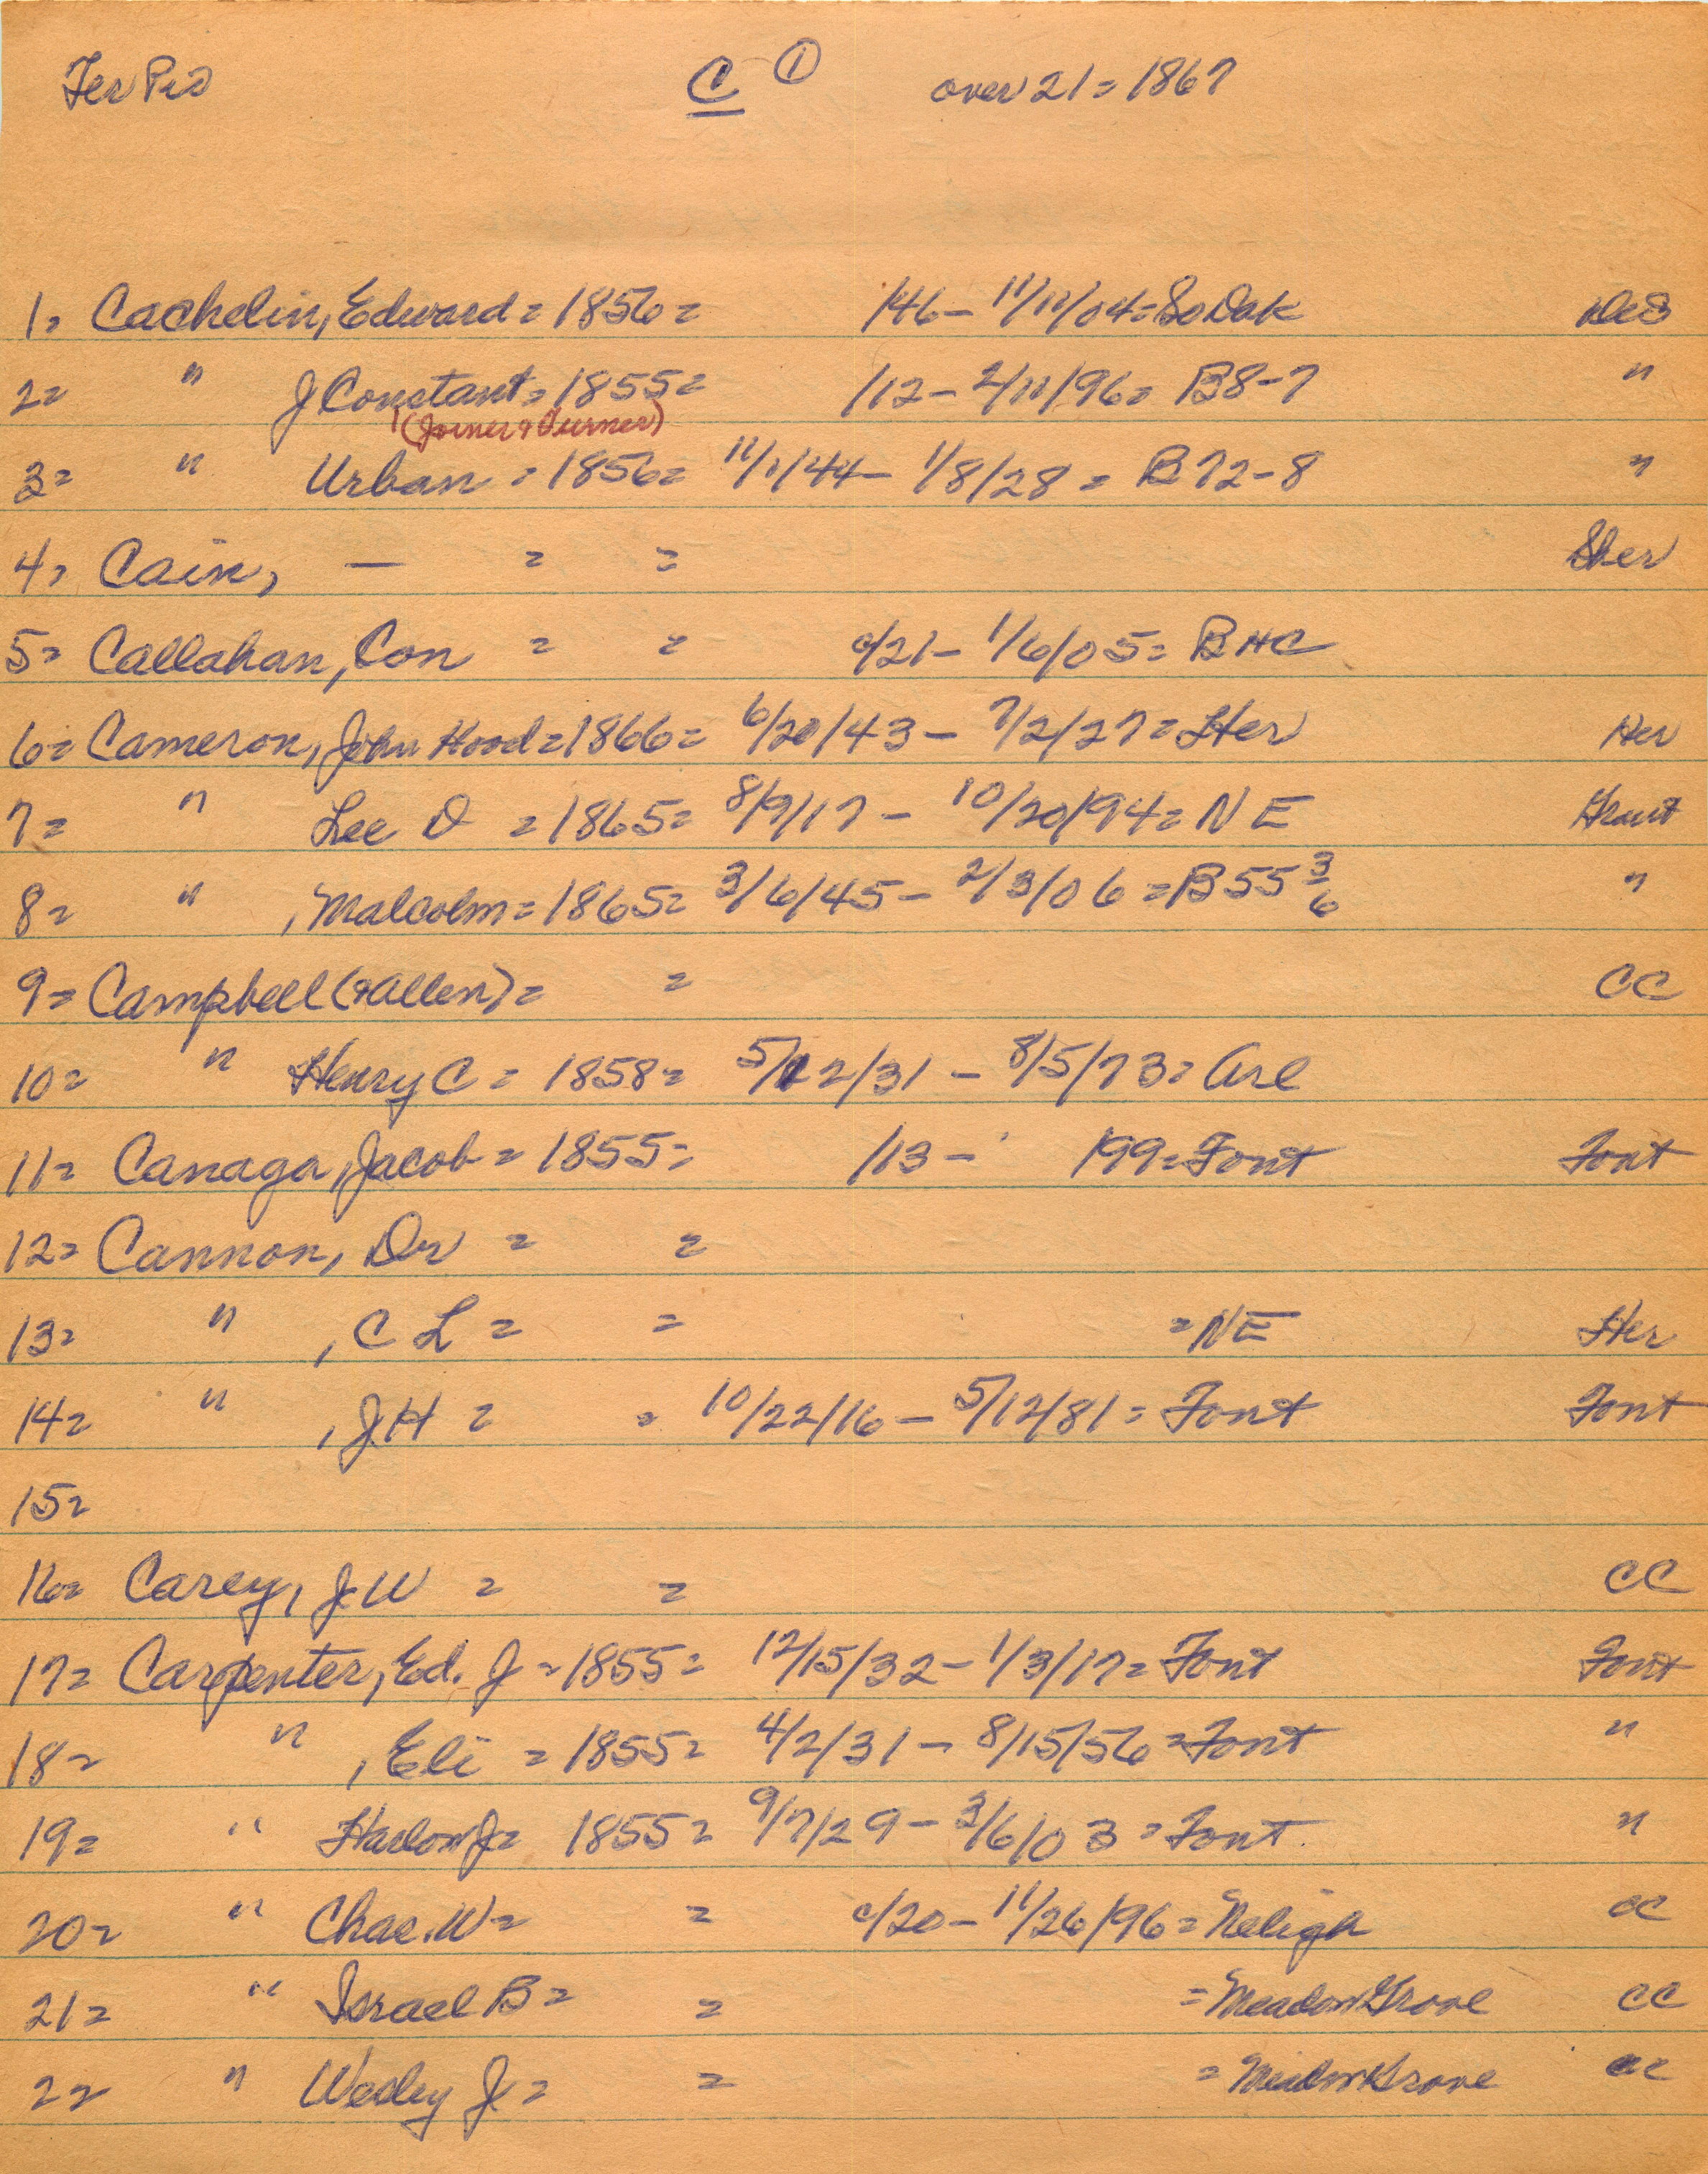 Ter Pio C ① over 21 = 1867
1= Cachelin, Edward = 1856 = /46 - 11/11/04 = So Dak DeS
2= " J Constant = 1855 = /12 - 2/11/96 = B8-7 "
(Joiner & Turner)
3= " Urban = 1856 = 11/1/44 - 1/8/28 = B72-8 "
4= Cain, — = = Sher
5= Callahan, Con = = c/21 - 1/6/05 = BHC
6= Cameron, John Hood = 1866 = 6/20/43 - 7/2/27 = Her Her
7= " Lee D = 1865 = 8/9/17 - 10/20/94 = NE Grant
8= " , Malcolm = 1865 = 3/6/45 - 2/3/06 = B55 3/6 "
9= Campbell (& Allen) = = CC
10= " Henry C = 1858 = 5/22/31 - 8/5/73 = Arl
11= Canaga, Jacob = 1855 = /13 - /99 = Font Font
12= Cannon, Dr = =
13= " , C L = = = NE Her
14= " , J H = = 10/22/16 - 5/12/81 = Font Font
15=
16= Carey, J W = = CC
17= Carpenter, Ed. J = 1855 = 12/15/32 - 1/3/17 = Font Font
18= " , Eli = 1855 = 4/2/31 - 8/15/56 = Font "
19= " Harlow J = 1855 = 9/7/29 - 3/6/03 = Font. "
20= " Chas. W = = c/20 - 11/26/96 = Neligh CC
21= " Israel B = = = Meadow Grove CC
22 " Wesley J = = = Meadow Grove CC